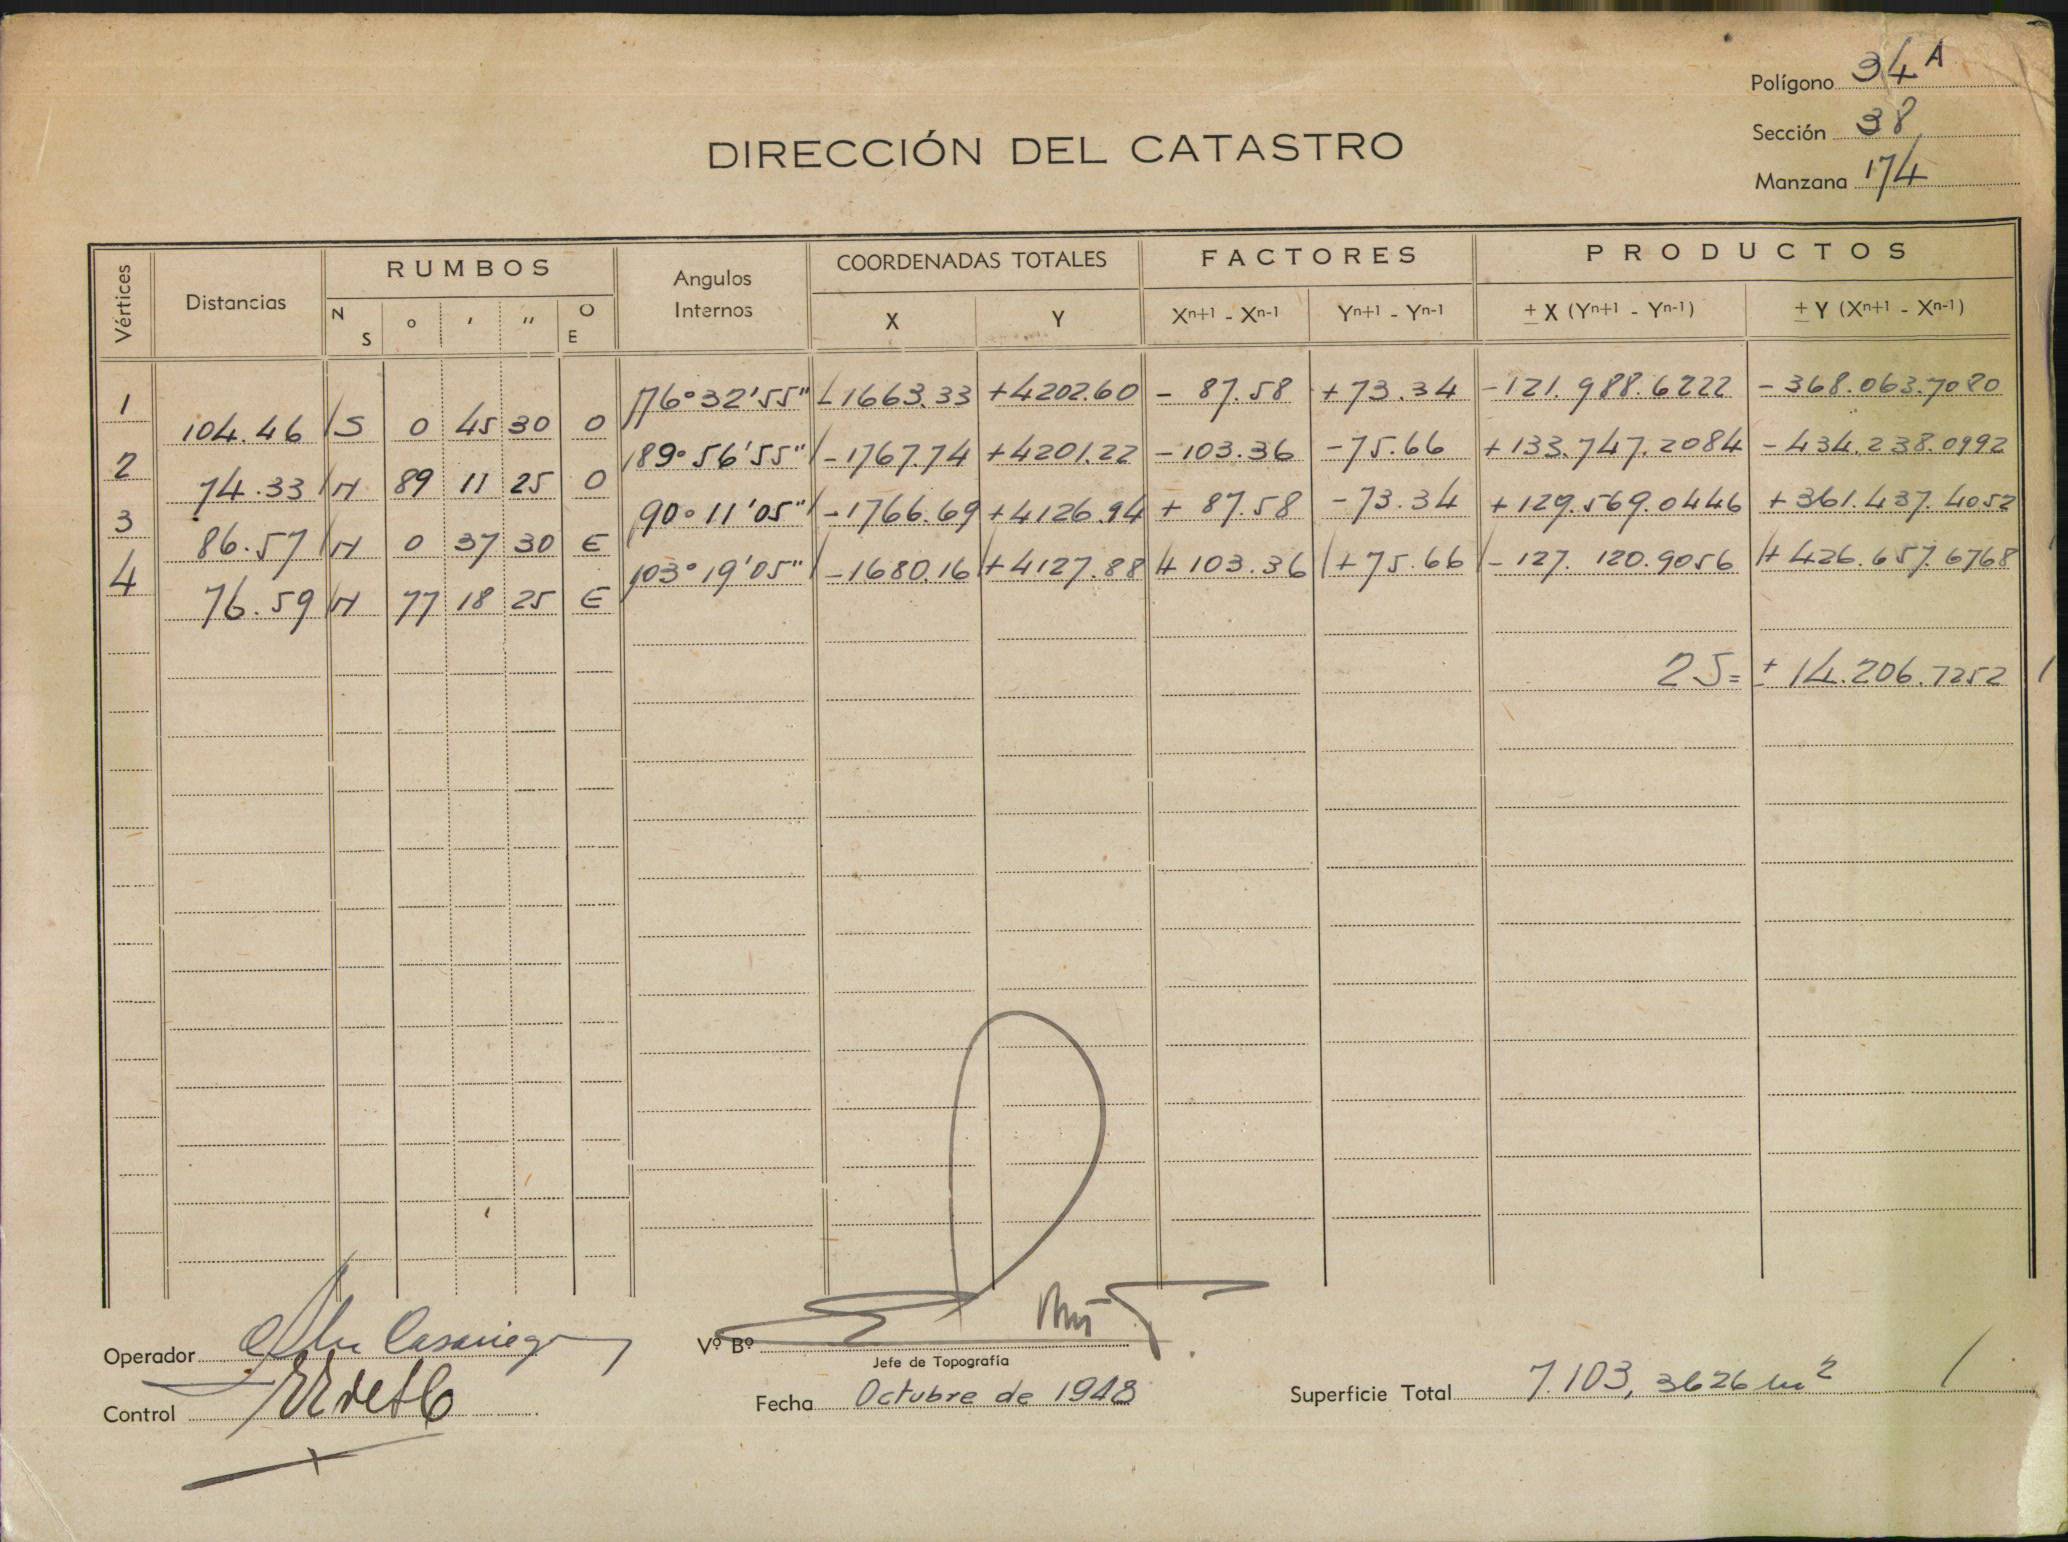 Polígono 34 A
Sección 38
Manzana 174
DIRECCIÓN DEL CATASTRO
Vértices Distancias RUMBOS N S o ' '' O E Angulos Internos COORDENADAS TOTALES X Y FACTORES Xn+1 - Xn-1 Yn+1 - Yn-1 PRODUCTOS ± X (Yn+1 - Yn-1) ± Y (Xn+1 - Xn-1)
1 76°32'55" -1663.33 +4202.60 - 87.58 +73.34 -121.988.6222 -368.063.7080
104.46 S 0 45 30 O
2 89°56'55" -1767.74 +4201.22 -103.36 -75.66 +133.747.2084 -434.238.0992
74.33 N 89 11 25 O
3 90°11'05" -1766.69 +4126.94 + 87.58 -73.34 +129.569.0446 +361.437.4052
86.57 N 0 37 30 E
4 103°19'05" -1680.16 +4127.88 +103.36 +75.66 -127.120.9056 +426.657.6768
76.59 N 77 18 25 E
2S= ± 14.206.7252
Operador
Vº Bº
Jefe de Topografía
Control
Fecha Octubre de 1948
Superficie Total 7.103,3626 m²